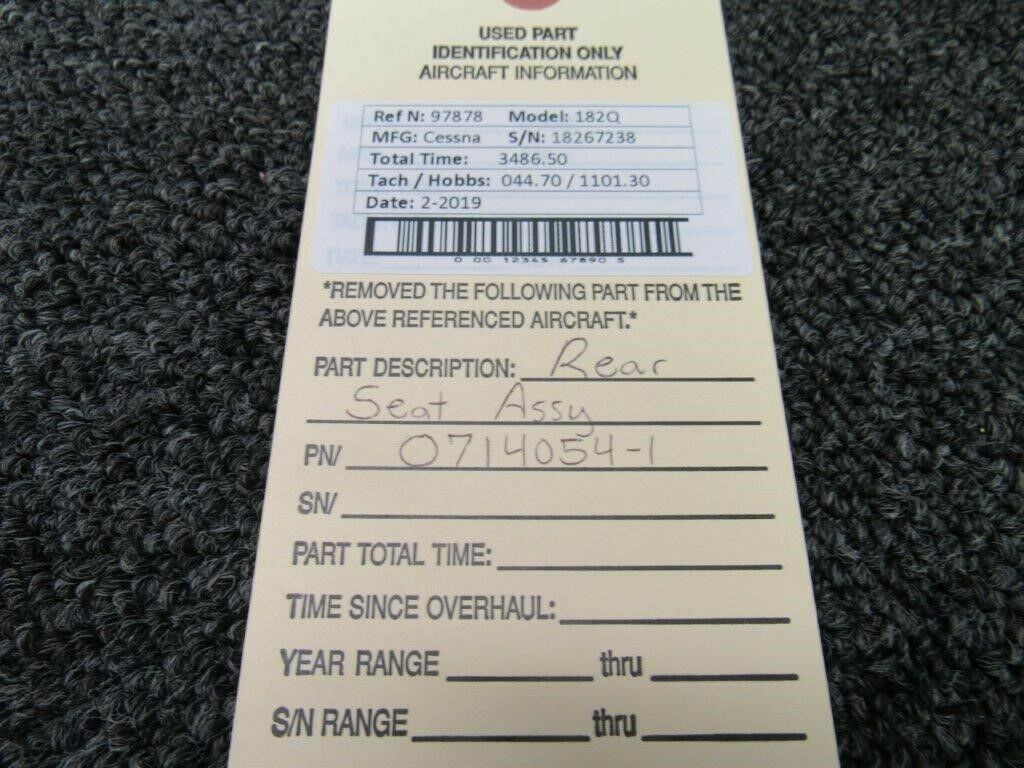 USED PART
IDENTIFICATION ONLY
AIRCRAFT INFORMATION
Ref N: 97878 Model: 182Q
MFG: Cessna S/N: 18267238
Total Time: 3486.50
Tach / Hobbs: 044.70 / 1101.30
Date: 2-2019
0 00 12345 67890 5
*REMOVED THE FOLLOWING PART FROM THE
ABOVE REFERENCED AIRCRAFT.*
PART DESCRIPTION: Rear
Seat Assy
PN/ 0714054-1
SN/
PART TOTAL TIME:
TIME SINCE OVERHAUL:
YEAR RANGE thru
S/N RANGE thru